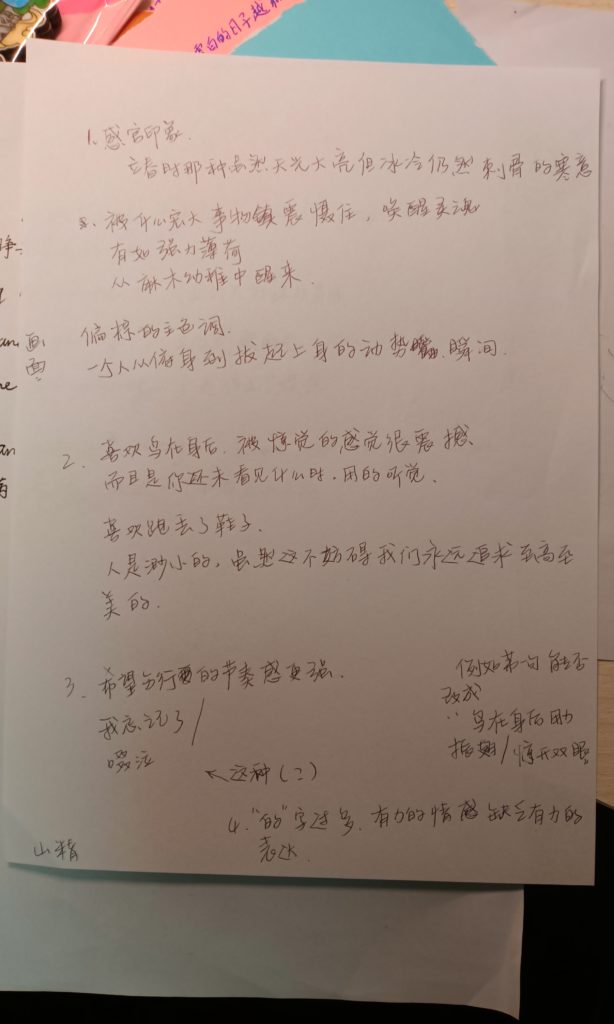 雪白的日子越
1. 感官印象.
立春时那种虽然天光大亮但冰冷仍然刺骨的寒意
被什么宏大事物镇震慑住，唤醒灵魂
有如强力薄荷
从麻木幼稚中醒来.
偏棕的主色调.
一个人从俯身到拔起上身的动势 瞬间.
2. 喜欢鸟在身后. 被惊觉的感觉很震撼.
而且是你还未看见什么时. 用的听觉.
喜欢跑丢了鞋子.
人是渺小的. 虽然这不妨碍我们永远追求至高至
美的.
3. 希望分行的节奏感更强.
我忘记了/
啜泣
←这种(二)
例如第一句能否
改成
"鸟在身后
振翅/惊开双眼"
4. "的"字过多. 有力的情感缺乏有力的
表达.
山精
画
面
an
an